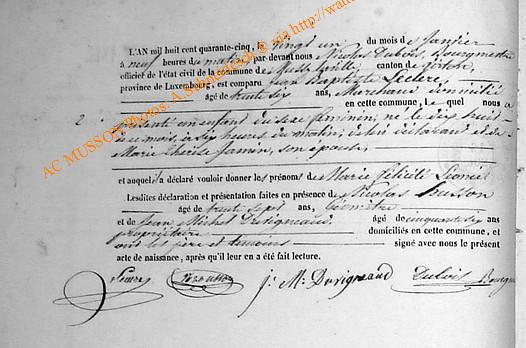 L'AN mil huit cent quarante-cinq, le vingt un du mois de Janvier
à neuf heures du matin par devant nous Nicolas Dubois, Bourgmestre
officier de l'état civil de la commune de Mussy la ville, canton de Virton,
province de Luxembourg, est comparu Jean Baptiste Leclere,
âgé de trente six ans, Marchand domicilié
en cette commune, lequel nous a
2 présenté un enfant du sexe féminin, né le dix huit
du mois, à six heures du matin, de lui déclarant et de
Marie Thérèse Jamin, son épouse,
et auquel il a déclaré vouloir donner les prénoms de Marie Félicité
Lesdites déclaration et présentation faites en présence de Nicolas Husson
âgé de trente sept ans,
et de Jean Michel Duvigneaud, âgé de cinquante six ans
propriétaire domiciliés en cette commune, et
ont les père et témoins signé avec nous le présent
acte de naissance, après qu'il leur en a été fait lecture.
J. M. Duvigneaud Dubois
AC MUSSON Photos: A. via http://